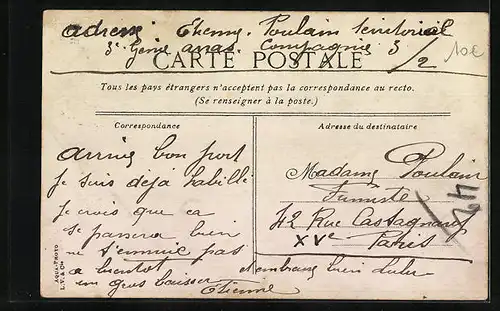 adresse Etienne Poulain territorial
3e Génie arras Compagnie 5/2
10€
CARTE POSTALE
Tous les pays étrangers n'acceptent pas la correspondance au recto.
(Se renseigner à la poste.)
Correspondance
Adresse du destinataire
arrivé bon port
je suis déjà habillé
je crois que ca
se passera bien
ne t'ennuie pas
a bientot
un gros baiser
Etienne
embrasse bien Lulu
Madame Poulain
Fumiste
42 Rue Castagnary
XVe Paris
AQUA-PHOTO
L.V. & Cie